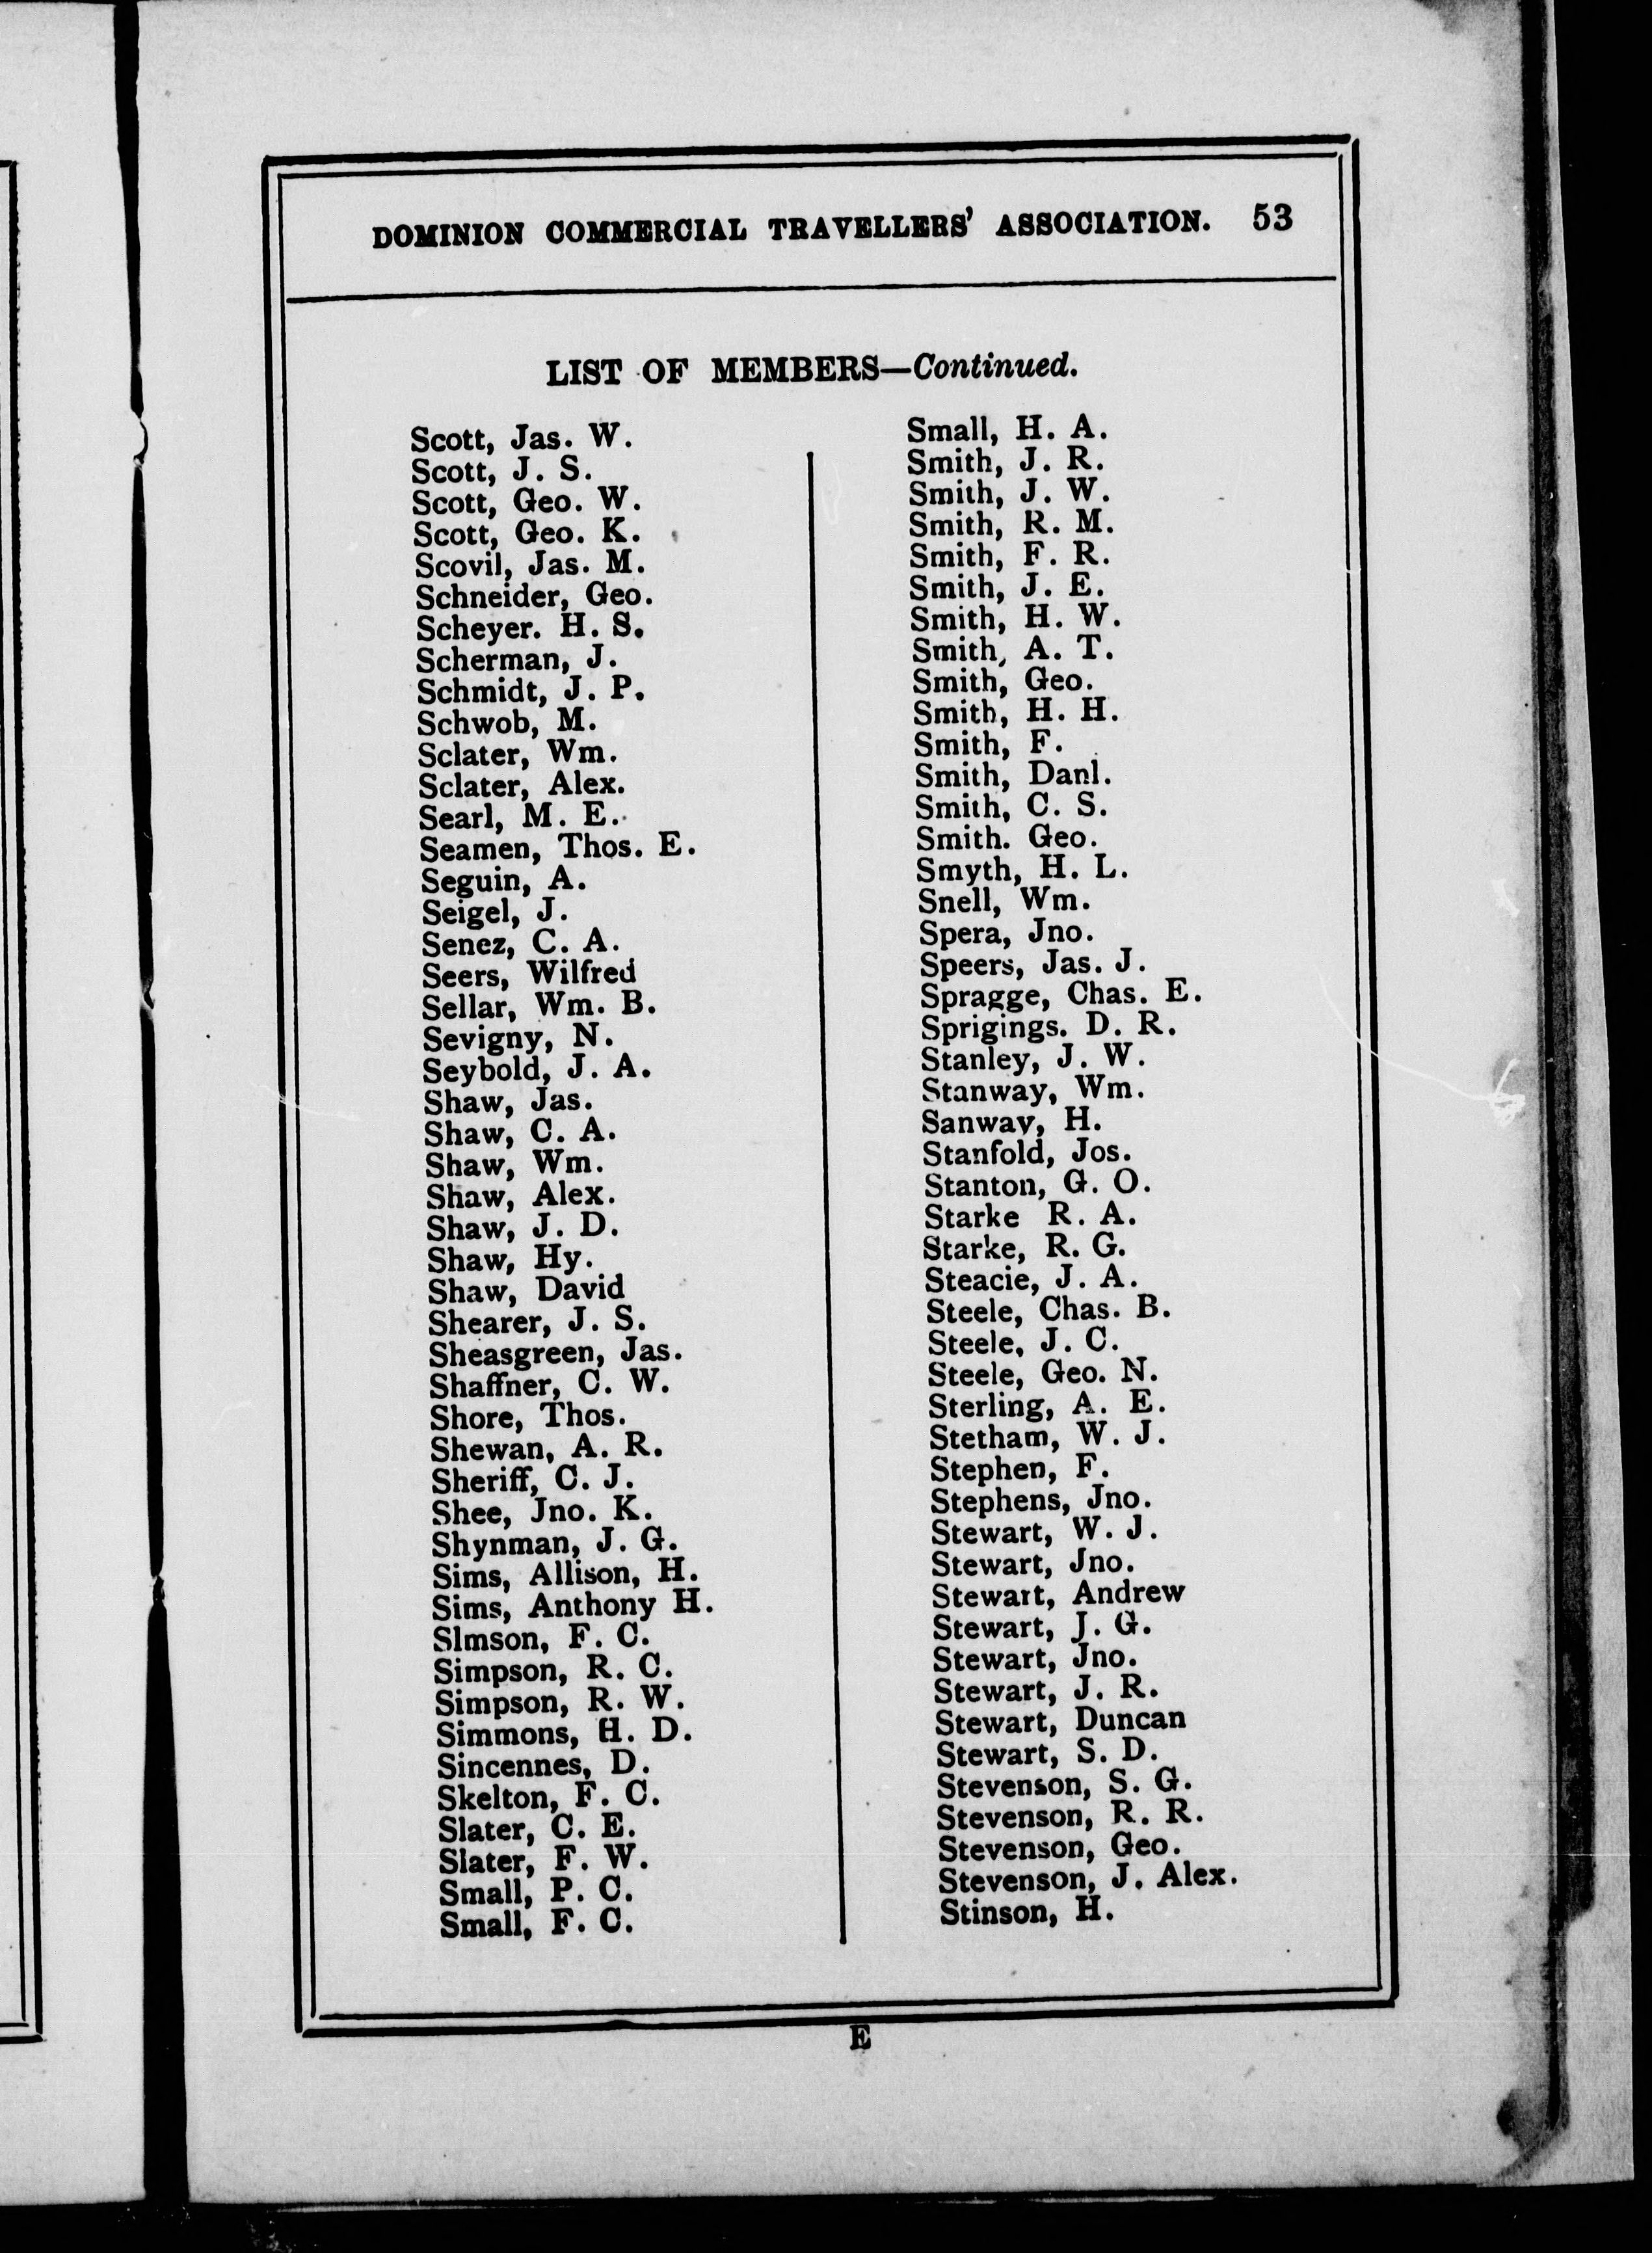 DOMINION COMMERCIAL TRAVELLERS' ASSOCIATION. 53
LIST OF MEMBERS—Continued.
Scott, Jas. W.
Scott, J. S.
Scott, Geo. W.
Scott, Geo. K.
Scovil, Jas. M.
Schneider, Geo.
Scheyer. H. S.
Scherman, J.
Schmidt, J. P.
Schwob, M.
Sclater, Wm.
Sclater, Alex.
Searl, M. E.
Seamen, Thos. E.
Seguin, A.
Seigel, J.
Senez, C. A.
Seers, Wilfred
Sellar, Wm. B.
Sevigny, N.
Seybold, J. A.
Shaw, Jas.
Shaw, C. A.
Shaw, Wm.
Shaw, Alex.
Shaw, J. D.
Shaw, Hy.
Shaw, David
Shearer, J. S.
Sheasgreen, Jas.
Shaffner, C. W.
Shore, Thos.
Shewan, A. R.
Sheriff, C. J.
Shee, Jno. K.
Shynman, J. G.
Sims, Allison, H.
Sims, Anthony H.
Slmson, F. C.
Simpson, R. C.
Simpson, R. W.
Simmons, H. D.
Sincennes, D.
Skelton, F. C.
Slater, C. E.
Slater, F. W.
Small, P. C.
Small, F. C.
Small, H. A.
Smith, J. R.
Smith, J. W.
Smith, R. M.
Smith, F. R.
Smith, J. E.
Smith, H. W.
Smith, A. T.
Smith, Geo.
Smith, H. H.
Smith, F.
Smith, Danl.
Smith, C. S.
Smith. Geo.
Smyth, H. L.
Snell, Wm.
Spera, Jno.
Speers, Jas. J.
Spragge, Chas. E.
Sprigings. D. R.
Stanley, J. W.
Stanway, Wm.
Sanway, H.
Stanfold, Jos.
Stanton, G. O.
Starke R. A.
Starke, R. G.
Steacie, J. A.
Steele, Chas. B.
Steele, J. C.
Steele, Geo. N.
Sterling, A. E.
Stetham, W. J.
Stephen, F.
Stephens, Jno.
Stewart, W. J.
Stewart, Jno.
Stewart, Andrew
Stewart, J. G.
Stewart, Jno.
Stewart, J. R.
Stewart, Duncan
Stewart, S. D.
Stevenson, S. G.
Stevenson, R. R.
Stevenson, Geo.
Stevenson, J. Alex.
Stinson, H.
E